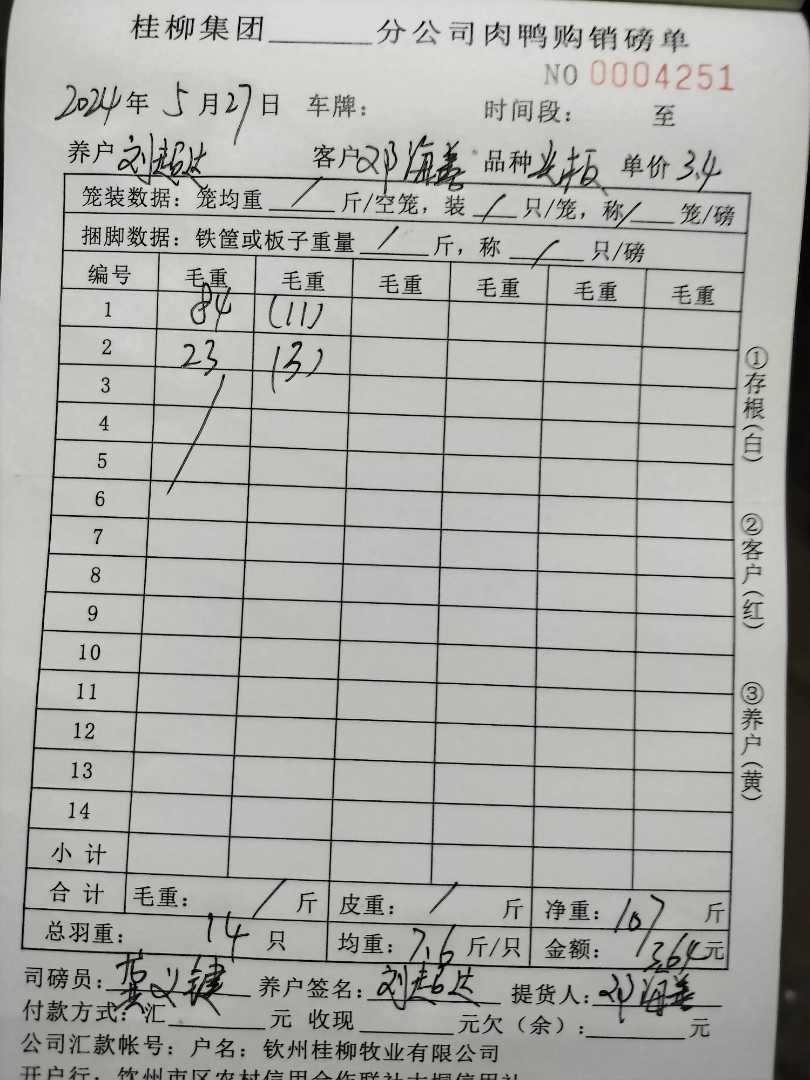 桂柳集团______分公司肉鸭购销磅单
NO 0004251
2024年 5月27日 车牌： 时间段： 至
养户 刘超达 客户 邓海善 品种 单价 3.4
笼装数据：笼均重 / 斤/空笼，装 / 只/笼，称 / 笼/磅
捆脚数据：铁筐或板子重量 / 斤，称 / 只/磅
编号 毛重 毛重 毛重 毛重 毛重 毛重
1 84 (11)
2 23 (3)
3
4
5
6
7
8
9
10
11
12
13
14
小计
合计 毛重： / 斤 皮重： / 斤 净重：107 斤
总羽重： 14 只 均重：7.6 斤/只 金额： 364元
司磅员： 养户签名：刘超达 提货人：邓海善
付款方式：汇______元 收现______元欠（余）：______元
公司汇款帐号：户名：钦州桂柳牧业有限公司
开户行：钦州市区农村信用合作联社大垌信用社
①存根(白)
②客户(红)
③养户(黄)